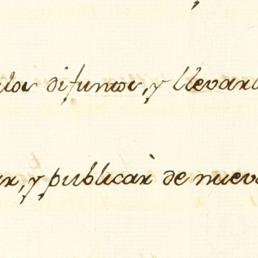 los difuntos, y llevar
ar, y publicar de nuev